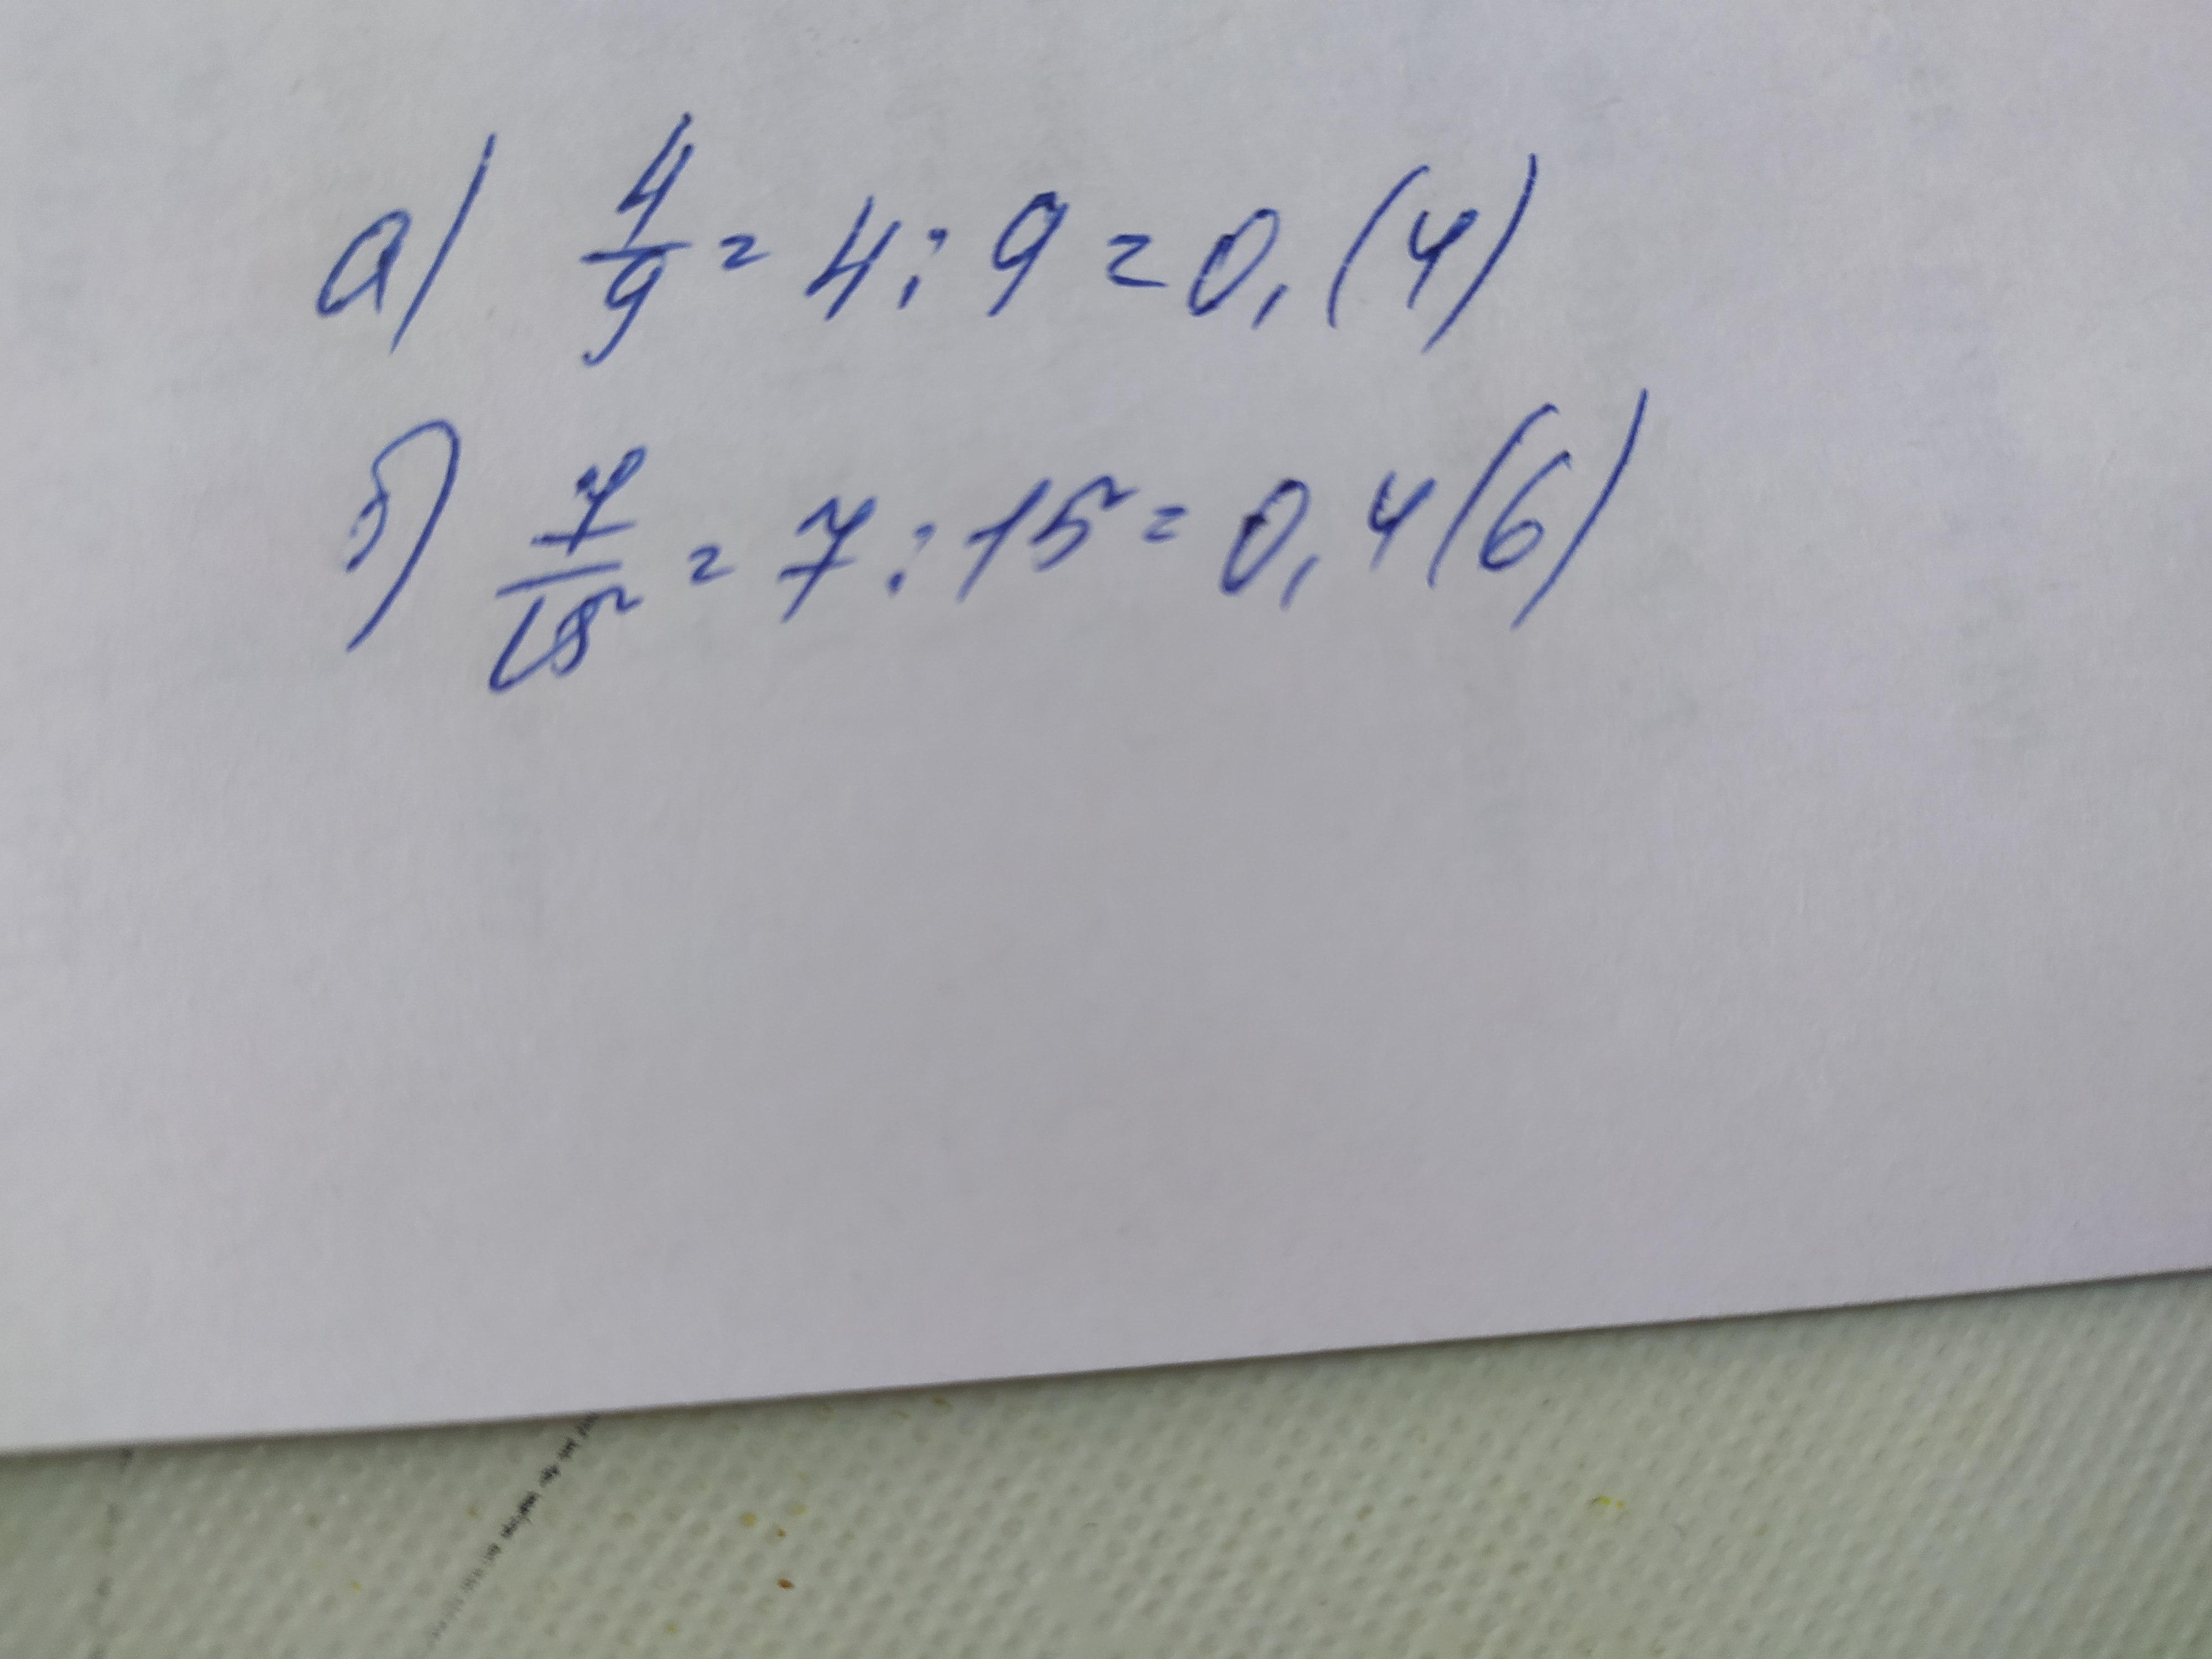 а) 4/9 = 4 : 9 = 0,(4)
б) 7/15 = 7 : 15 = 0,4(6)